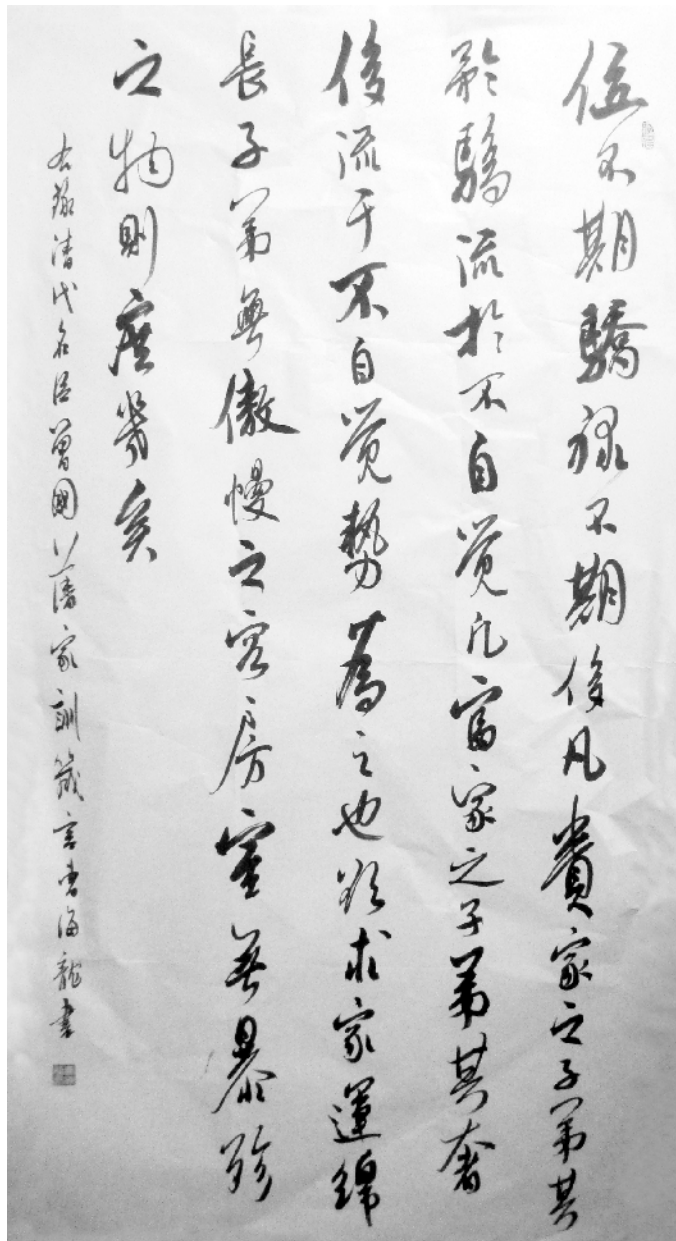 位不期驕祿不期侈凡貴家之子弟其
矜驕流於不自覚凡富家之子弟其奢
侈流于不自覚勢為之也欲求家運綿
長子弟無傲慢之容房室無暴殄
之物則庶幾矣
右錄清代名臣曾國藩家訓箴言書海龍書